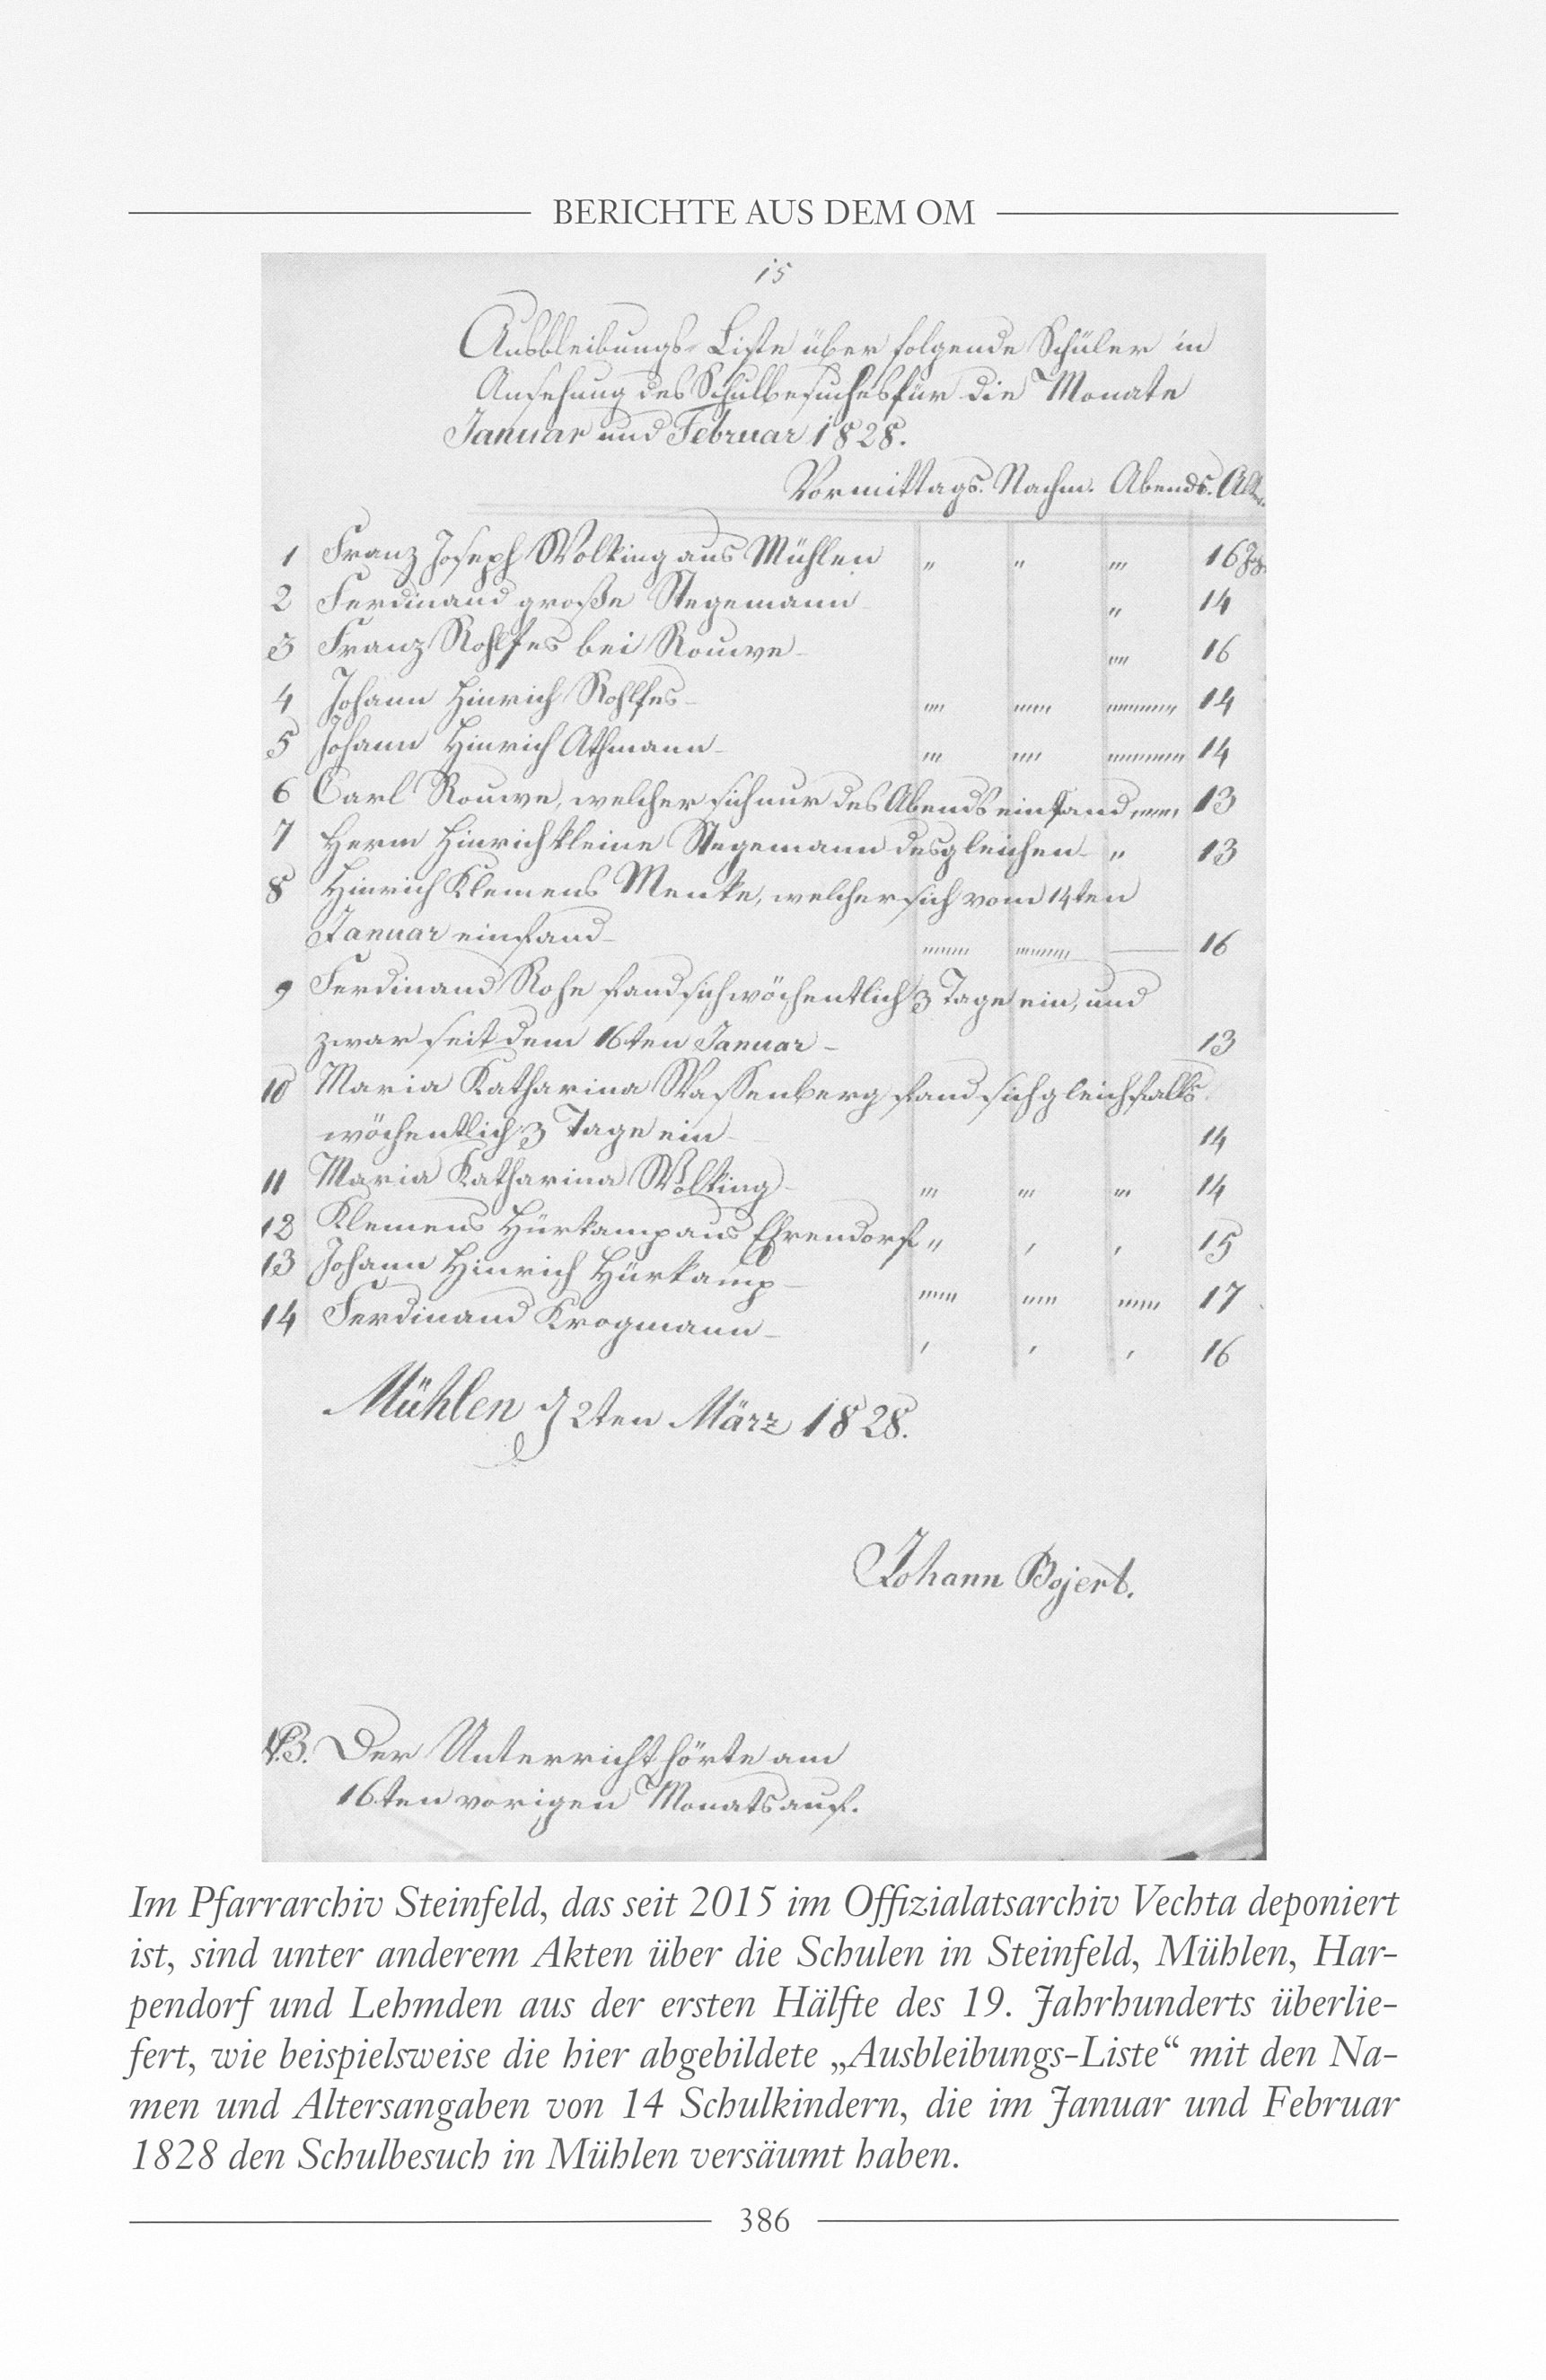 BERICHTE AUS DEM OM
15
Ausbleibungs-Liste über folgende Schüler in
Ansehung des Schulbesuches für die Monate
Januar und Februar 1828.
Vormittags. Nachm. Abends. Alt.
1 Franz Joseph Wolking aus Mühlen " " ''' 16 Jhr.
2 Ferdinand große Stegemann " 14
3 Franz Rohlfes bei Rouwe- '''' 16
4 Johann Hinrich Rohlfes- 14
5 Johann Hinrich Athmann- 14
6 Carl Rouwe, welcher sich nur des Abends einfand 13
7 Herm Hinrich kleine Stegemann desgleichen- " 13
8 Hinrich Klemens Menke, welcher sich vom 14ten
Januar einfand- 16
9 Ferdinand Rohe fand sich wöchentlich 3 Tage ein, und
zwar seit dem 16ten Januar- 13
10 Maria Katharina Wassenberg fand sich gleichfalls
wöchentlich 3 Tage ein- 14
11 Maria Katharina Wolking- ''' ''' ''' 14
12 Klemens Hürkamp aus Ehrendorf " ' ' 15
13 Johann Hinrich Hürkamp- 17
14 Ferdinand Krogmann- ' ' ' 16
Mühlen d 2ten März 1828.
Johann Bojert.
NB. Der Unterricht hörte am
16ten vorigen Monats auf.
Im Pfarrarchiv Steinfeld, das seit 2015 im Offizialatsarchiv Vechta deponiert
ist, sind unter anderem Akten über die Schulen in Steinfeld, Mühlen, Har-
pendorf und Lehmden aus der ersten Hälfte des 19. Jahrhunderts überlie-
fert, wie beispielsweise die hier abgebildete „Ausbleibungs-Liste“ mit den Na-
men und Altersangaben von 14 Schulkindern, die im Januar und Februar
1828 den Schulbesuch in Mühlen versäumt haben.
386